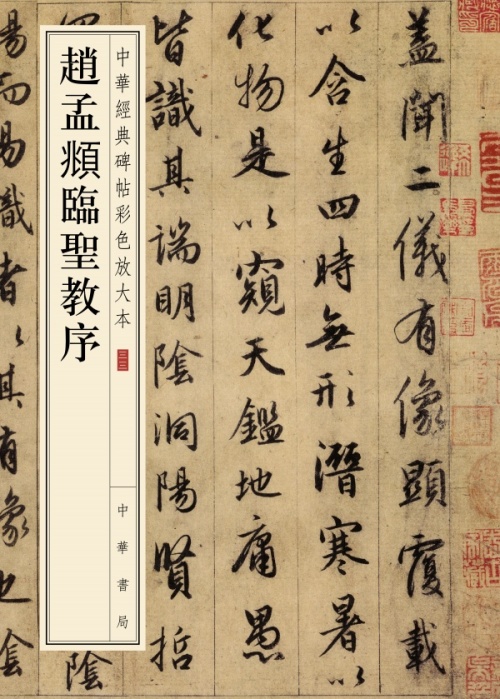 蓋聞二儀有像顯覆載
以含生四時無形潛寒暑以
化物是以窺天鑑地庸愚
皆識其端明陰洞陽賢哲
中華經典碑帖彩色放大本
三三
中華書局
趙孟頫臨聖教序
陰
陽而易識者以其有象也陰